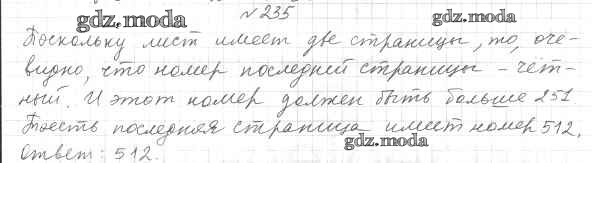 № 235
gdz.moda gdz.moda
Поскольку лист имеет две страницы, то, оче-
видно, что номер последней страницы - чёт-
ный. И этот номер должен быть больше 251
Тоесть последняя страница имеет номер 512.
gdz.moda
Ответ: 512.